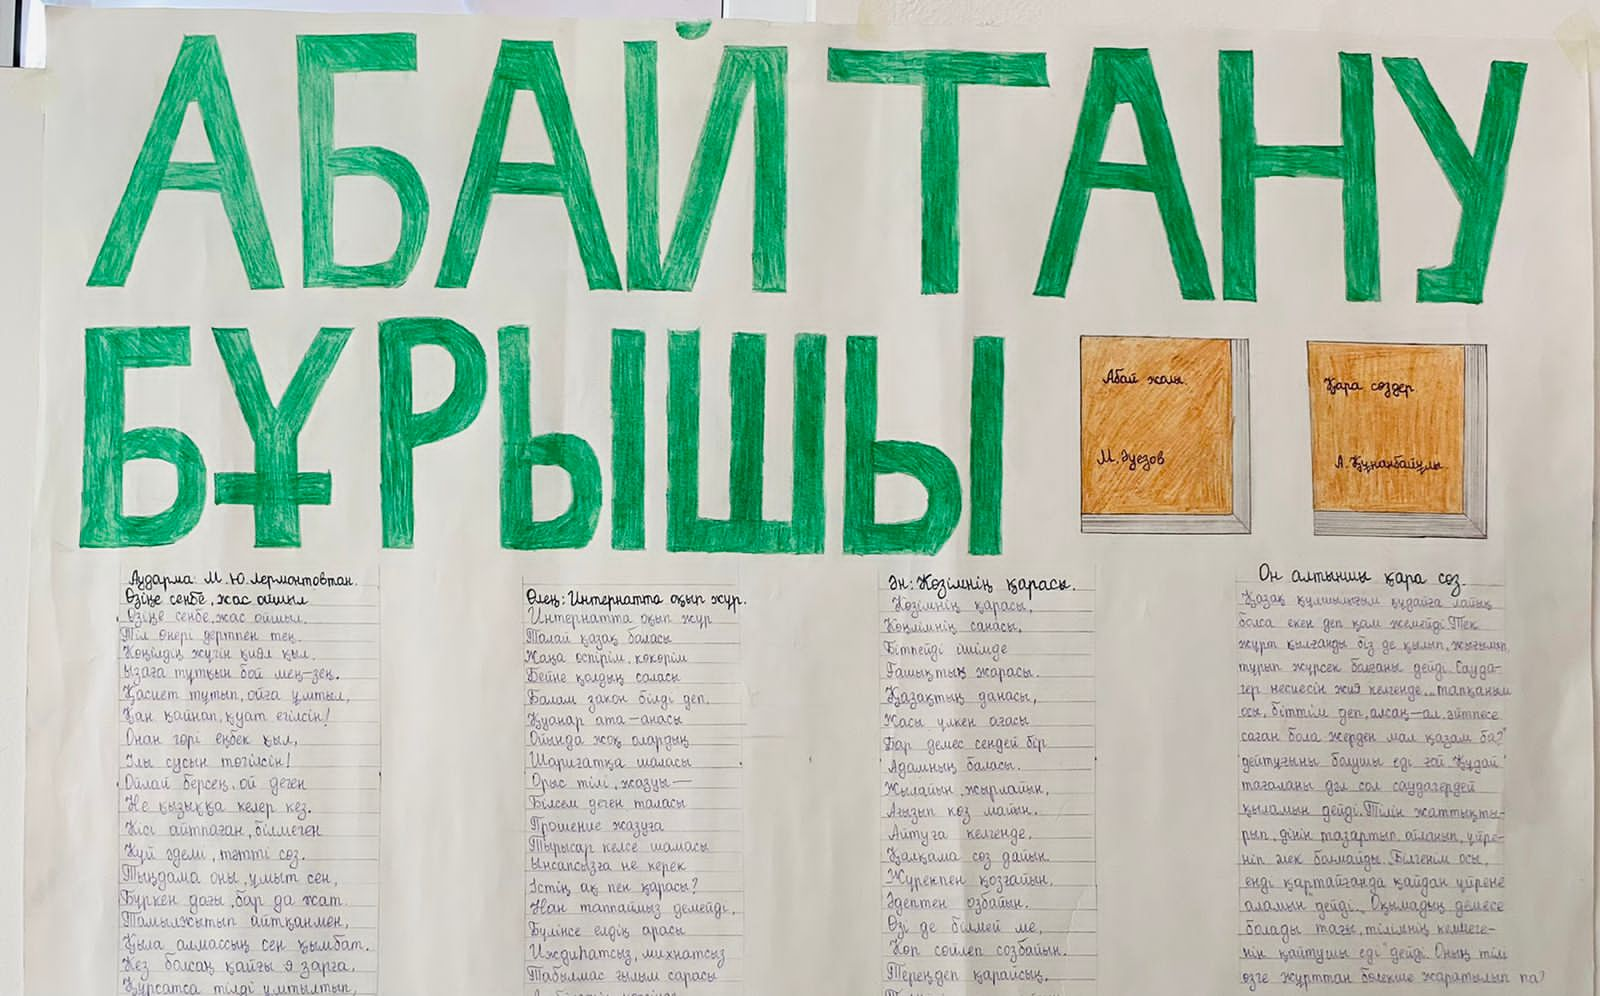 АБАЙ ТАНУ
БҰРЫШЫ
Абай жолы.
М.Әуезов
Қара сөздер
А.Құнанбайұлы
Аударма: М.Ю.Лермонтовтан.
Өзіңе сенбе, жас ойшыл
Өзіңе сенбе, жас ойшыл.
Тіл өнері дертпен тең.
Көңілдің жүгін қиял қыл,
Ызаға тұтқын бой мең-зең.
Қасиет тұтып, ойға ұмтыл,
Қан қайнап, қуат егілсін!
Онан гөрі еңбек қыл,
Улы сусын төгілсін!
Ойлай берсең, ой деген
Не қызыққа келер кез.
Кісі айтпаған, білмеген
Күй әдемі, тәтті сөз.
Тыңдама оны, ұмыт сен,
Бүркен дағы, бар да жат.
Тамылжытып айтқанмен,
Қыла алмассың сен қымбат.
Кез болсаң қайғы я зарға,
Құрсатса тілді ұмтылтып,
Өлең: Интернатта оқып жүр.
Интернатта оқып жүр
Талай қазақ баласы
Жаңа өспірім, көкөрім
Бейне қолдың саласы
Балам закон білді деп,
Қуанар ата-анасы
Ойында жоқ олардың
Шариғатқа шаласы
Орыс тілі, жазуы—
Білсем деген таласы
Прошение жазуға
Тырысар келсе шамасы
Ынсапсызға не керек
Істің ақ пен қарасы?
Нан таппаймыз демейді,
Бүлінсе елдің арасы
Иждиһатсыз, михнатсыз
Табылмас ғылым сарасы
Ән: Көзімнің қарасы.
Көзімнің қарасы,
Көңілімнің санасы,
Бітпейді ішімде
Ғашықтық жарасы.
Қазақтың данасы,
Жасы үлкен ағасы
Бар демес сендей бір
Адамның баласы.
Жылайын, жырлайын,
Ағызып көз майын.
Айтуға келгенде,
Қалқама сөз дайын.
Жүректен қозғайын,
Әдептен озбайын.
Өзі де білмей ме,
Көп сөйлеп созбайын.
Тереңдеп қарайсың,
Он алтыншы қара сөз.
Қазақ құлшылығым құдайға лайық
болса екен деп қам жемейді. Тек
жұрт қылғанды біз де қылып, жығылып,
тұрып жүрсек болғаны дейді. Сауда-
гер несиесін жия келгенде „тапқаным
осы, біттім деп, алсаң—ал, әйтпесе
саған бола жерден мал қазам ба?"
дейтұғыны болушы еді ғой. Құдай
тағаланы дәл сол саудагердей
қыламын дейді. Тілін жаттықты-
рып, дінін тазартып, ойланып, үйре-
ніп әлек болмайды. „Білгенім осы,
енді қартайғанда қайдан үйрене
аламын" дейді. „Оқымадың демесе
болады тағы, тілімнің келмеге-
нін қайтуші еді" дейді. Оның тілі
өзге жұрттан бөлекше жаратылып па?